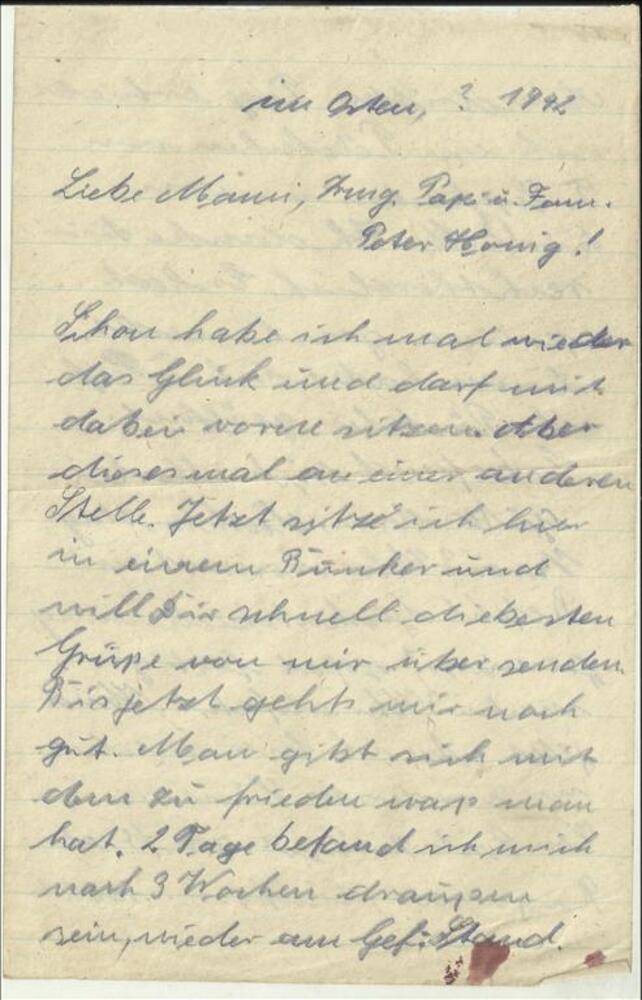 im Osten, ? 1942
Liebe Mami, Papi u. Fam.
Peter Honig!
Schon habe ich mal wieder
das Glück und darf mit
dabei vorne sitzen. Aber
dieses mal an einer anderen
Stelle. Jetzt sitze ich hier
in einem Bunker und
will Dir schnell die besten
Grüße von mir über senden.
Bis jetzt gehts mir noch
gut. Man gibt sich mit
dem zu frieden was man
hat. 2 Tage befand ich mich
nach 3 Wochen draußen
sein, wieder am Gef. Stand.